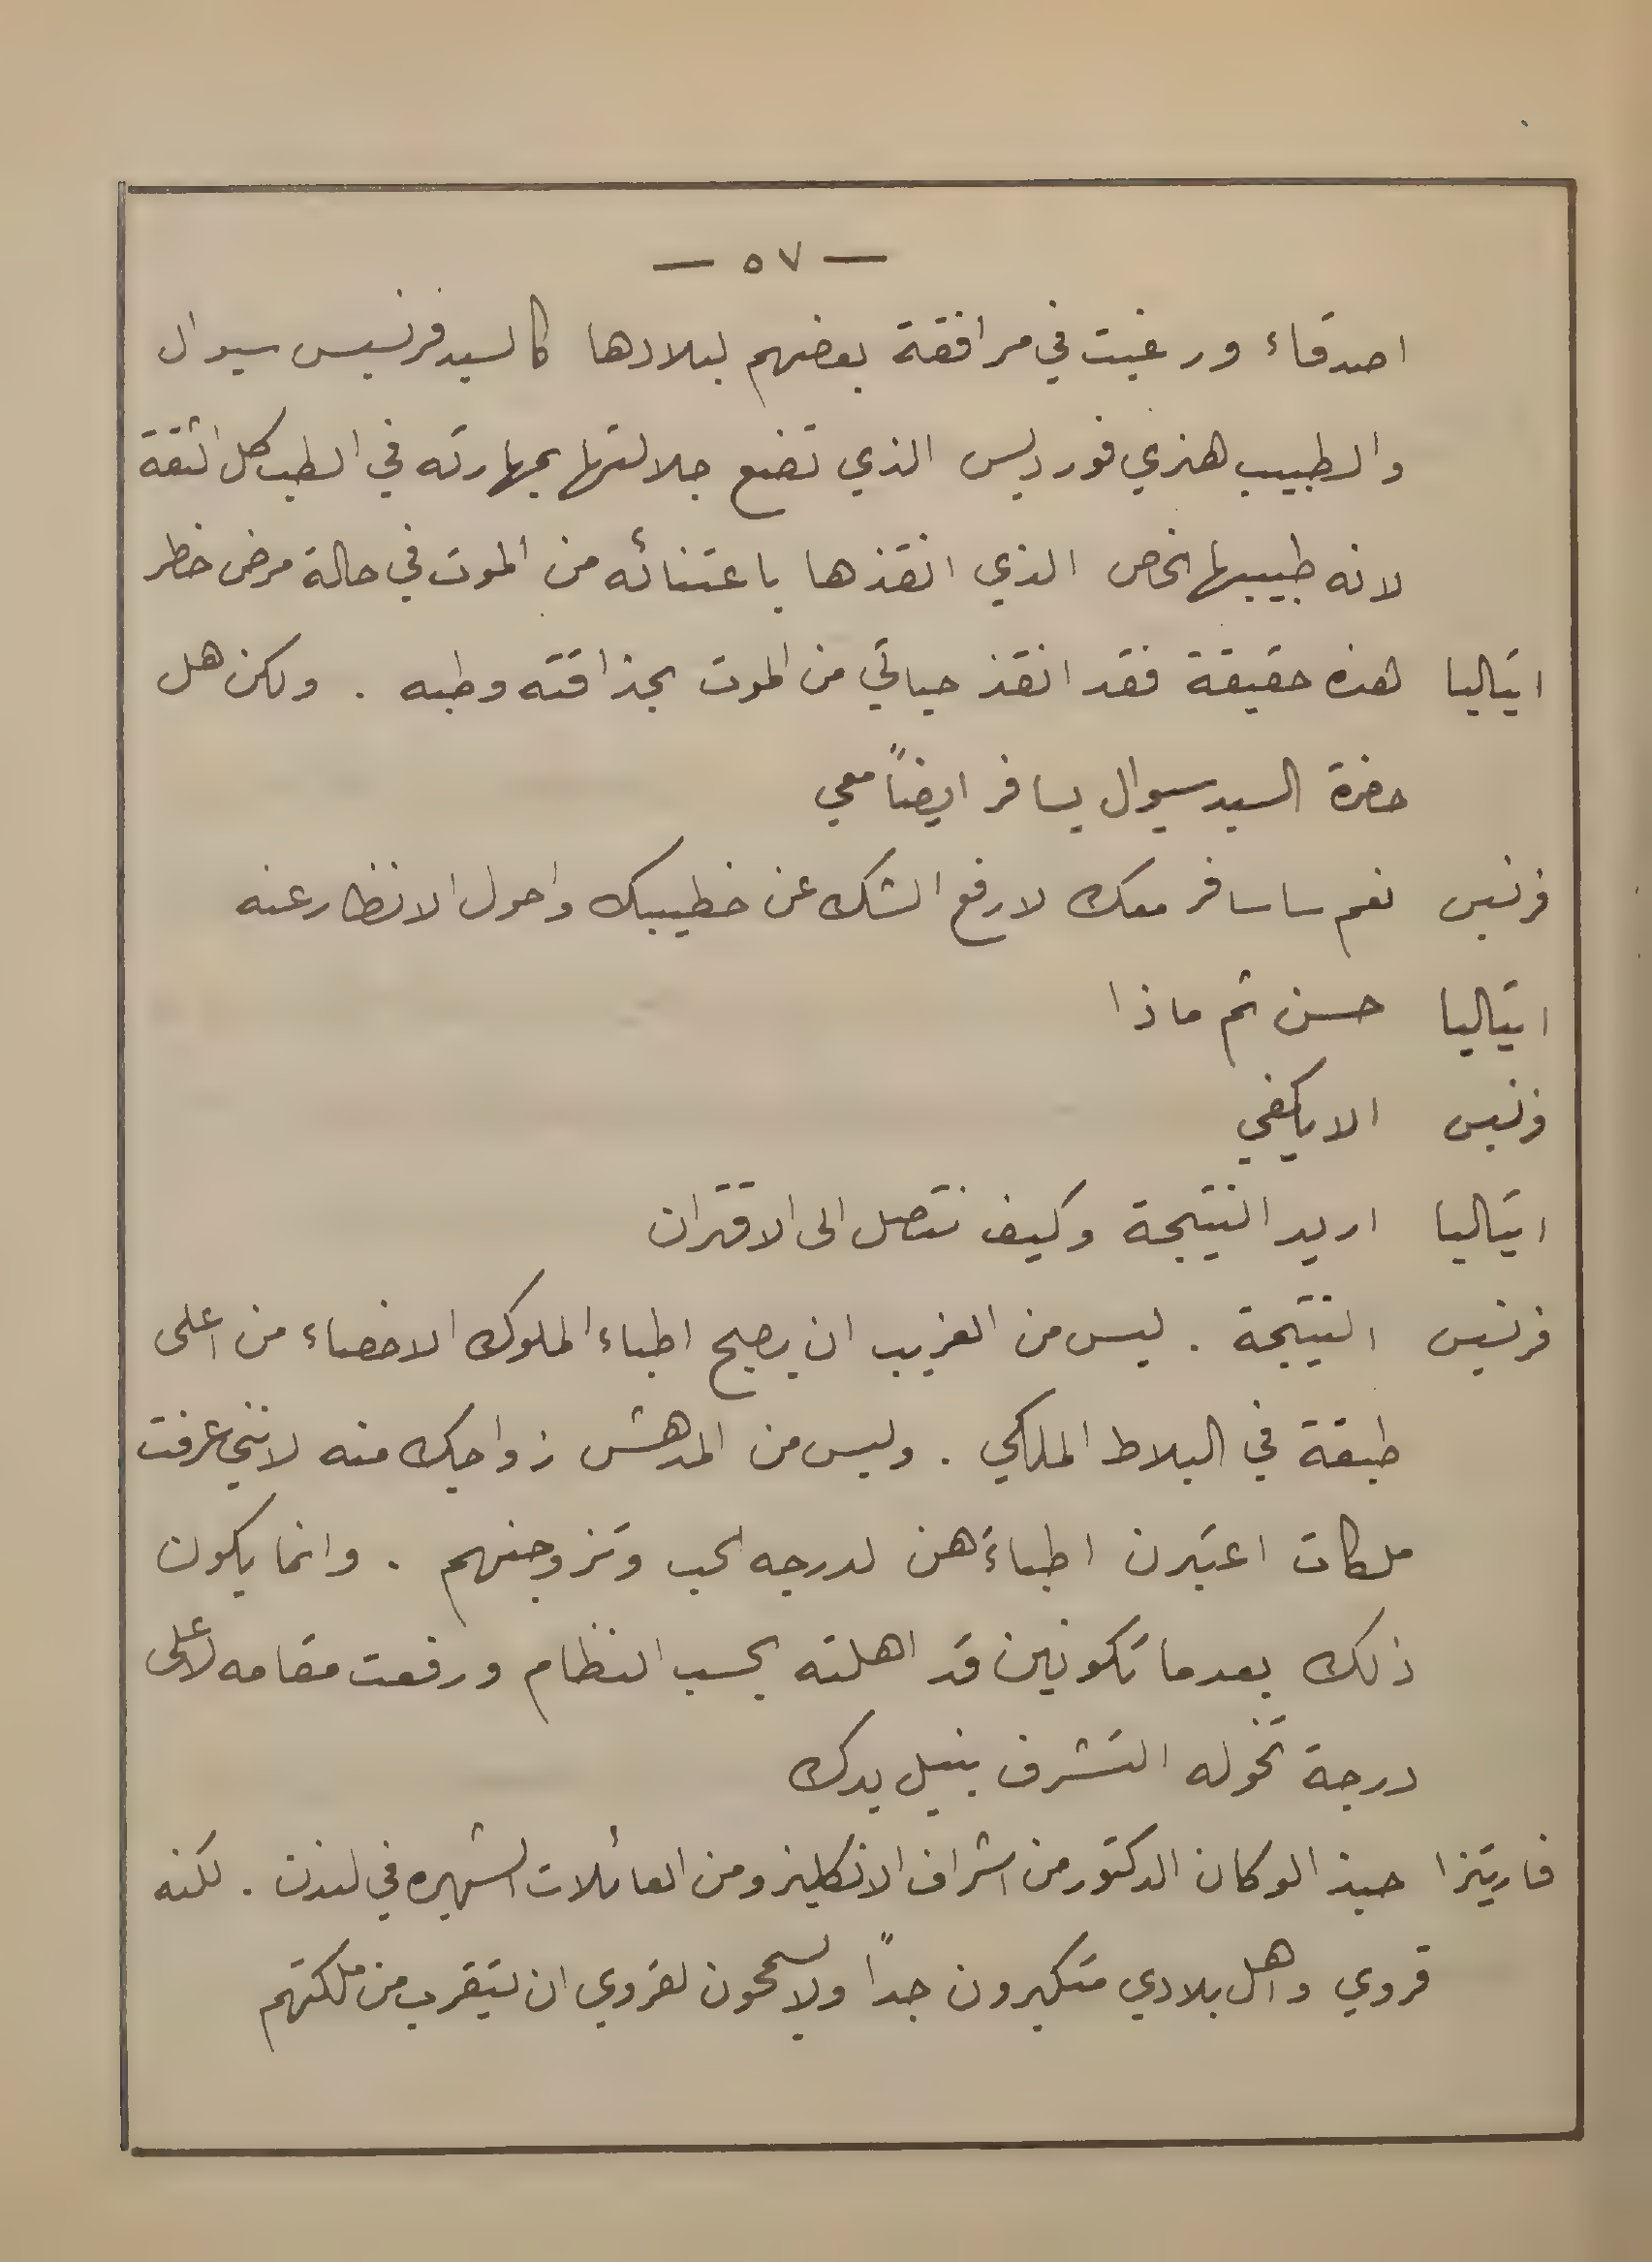 — ٥٧ —
اصدقاء ورغبت في مرافقة بعضهم لبلادها كالسيد فرنسيس سيوال
والطبيب هنري فورديس الذي تضع جلالتها بمهارته في الطب كل الثقة
لانه طبيبها الخاص الذي انقذها باعتنائه من الموت في حالة مرض خطر
ايتاليا هذه حقيقة فقد انقذ حياتي من الموت بحذاقته وطبه . ولكن هل
حضرة السيد سيوال يسافر ايضاً معي
فرنسيس نعم ساسافر معك لارفع الشك عن خطيبك واحول الانظار عنه
ايتاليا حسن ثم ماذا
فرنسيس الا يكفي
ايتاليا اريد النتيجة وكيف نتصل الى الاقتران
فرنسيس النتيجة . ليس من الغريب ان يصبح اطباء الملوك الاخصاء من اعلى
طبقة في البلاط الملكي . وليس من المدهش زواجك منه لانني عرفت
ملكات اعتبرن اطباءَهن لدرجه الحب وتزوجنهم . وانما يكون
ذلك بعدما تكونين قد اهلته بحسب النظام ورفعت مقامه لاعلى
درجة تخوله التشرف بنيل يدك
فاريتزا حبذا لو كان الدكتور من اشراف الانكليز ومن العائلات الشهيره في لندن . لكنه
قروي واهل بلادي متكبرون جداً ولا يسمحون لقروي ان يتقرب من ملكتهم